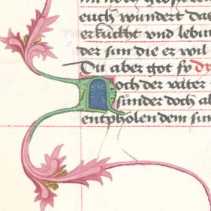 euch wundert da
erkückt vnd lebu
der sun die er wil
Du aber got
och der vater
sunder doch al
entpholen dem sun